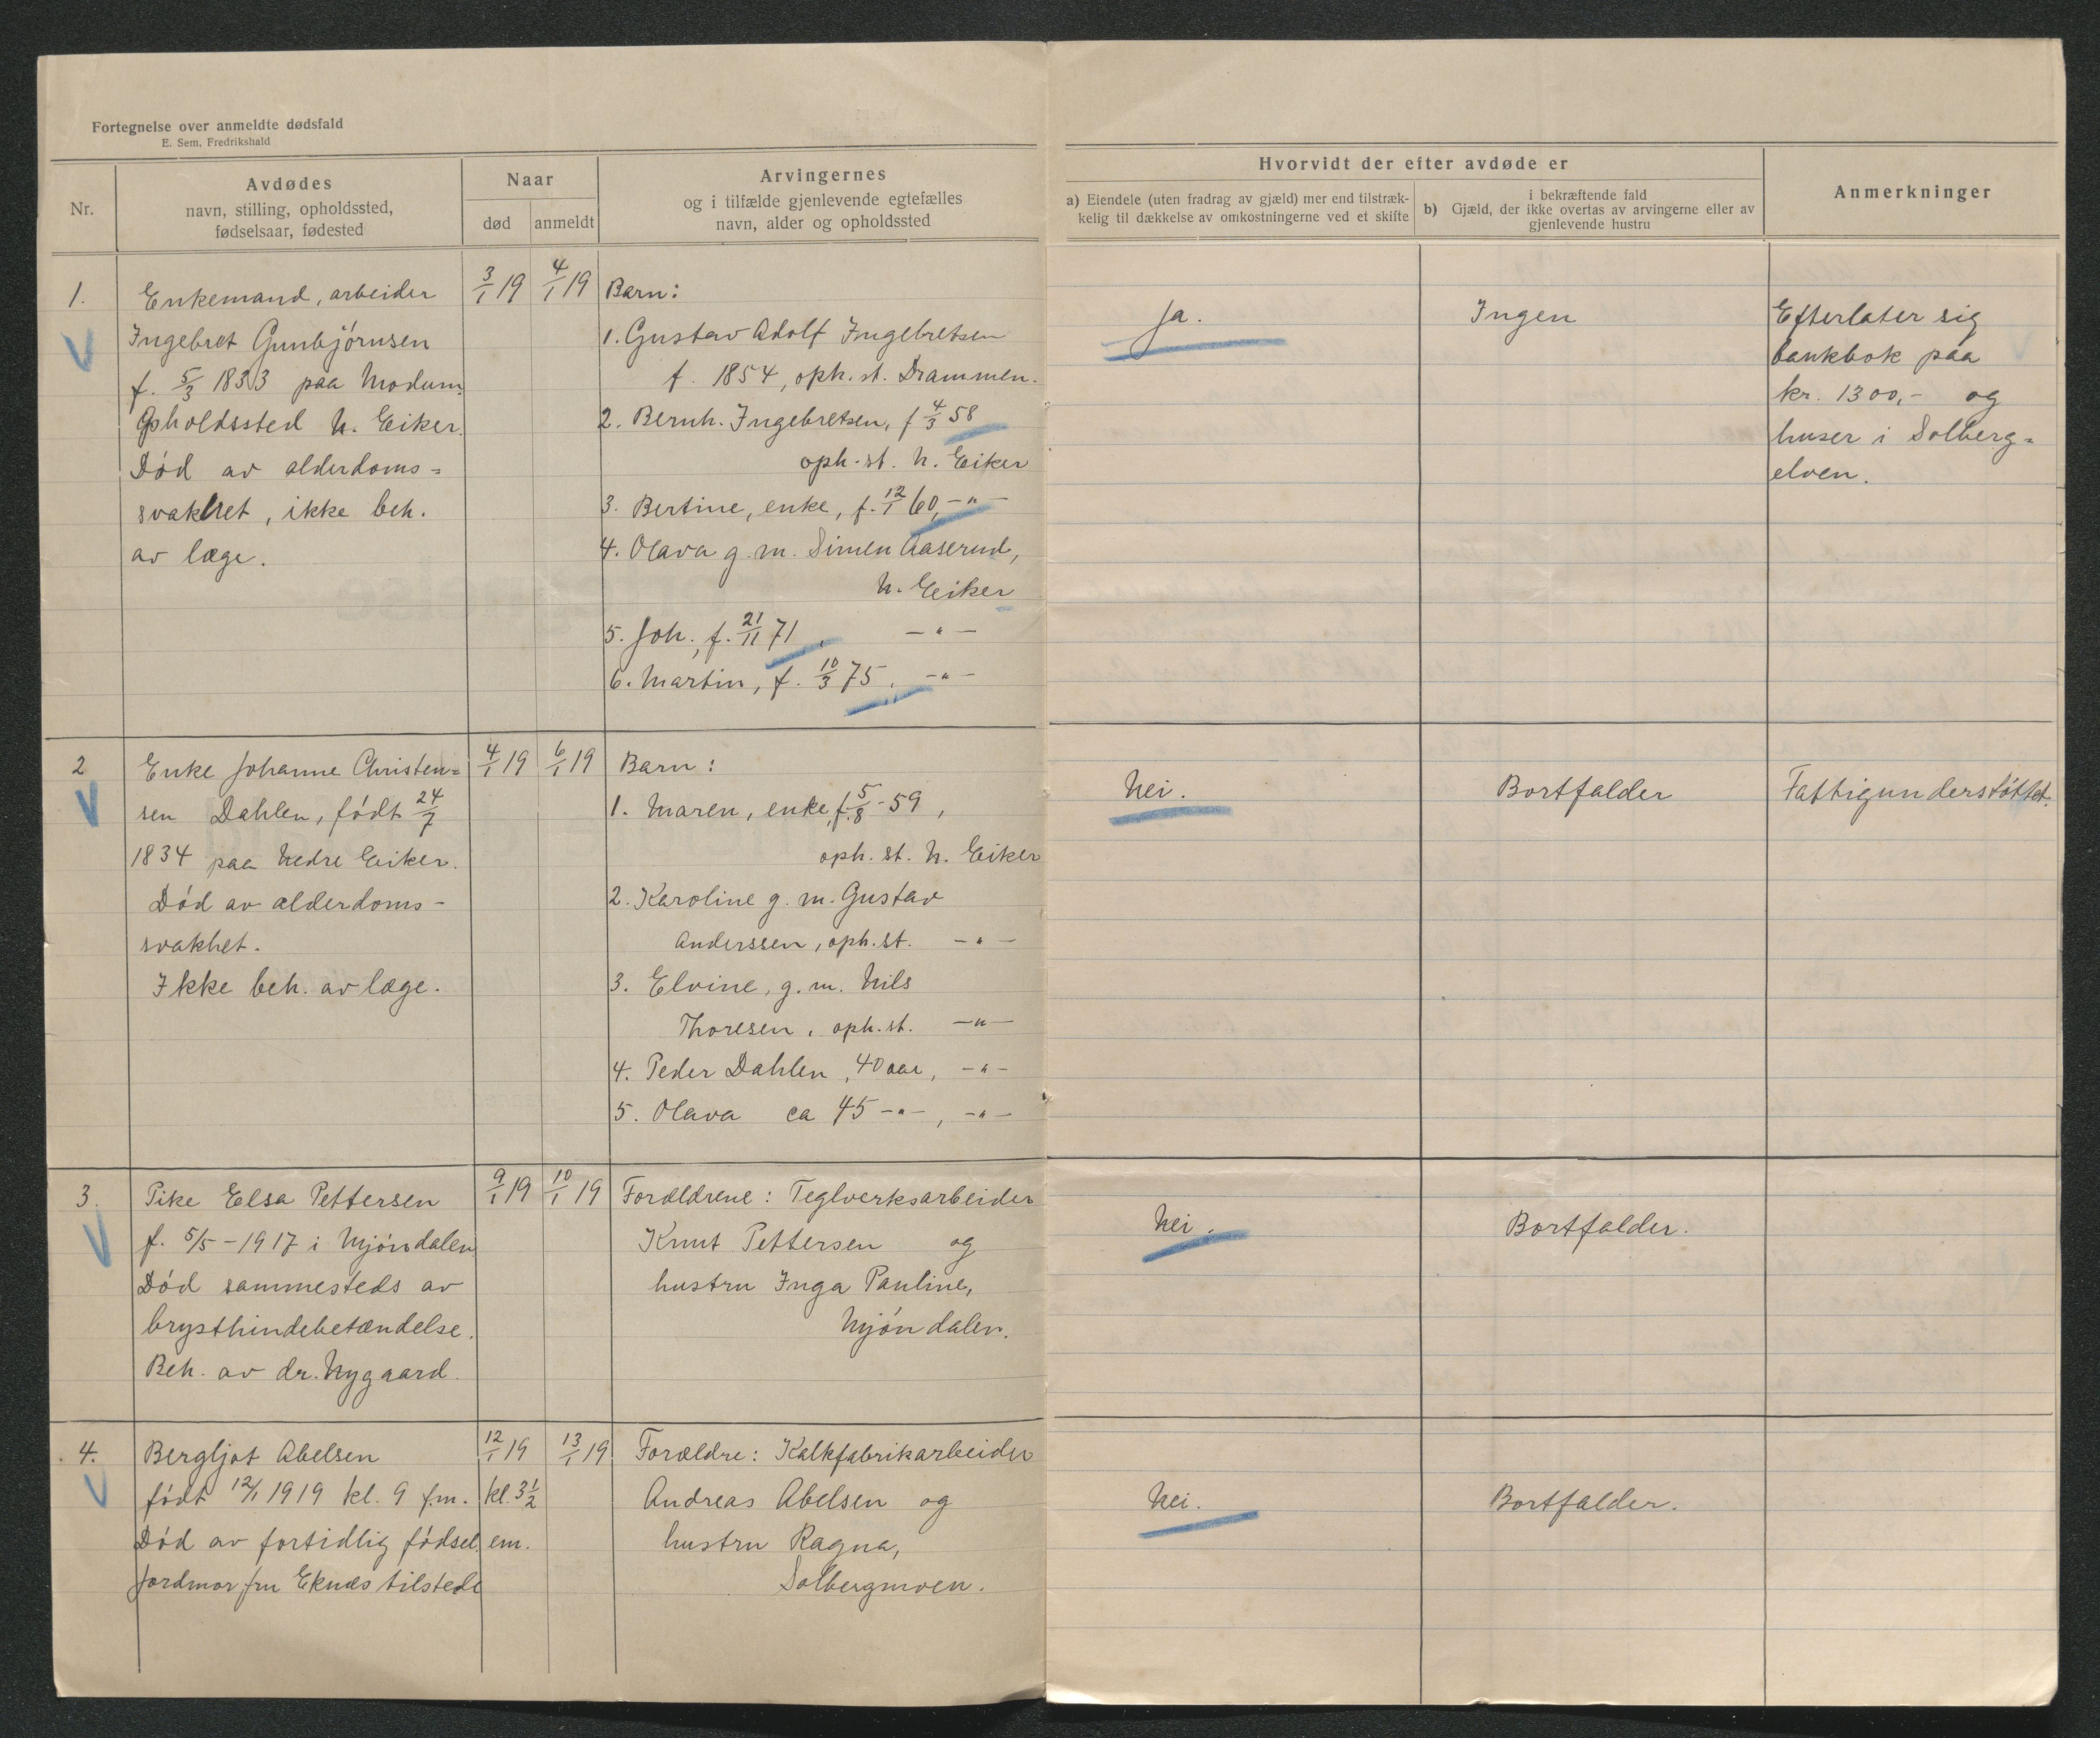 Fortegnelse over anmeldte dødsfald
E. Sem, Fredrikshald
Nr.
Avdødes
navn, stilling, opholdssted,
fødselsaar, fødested
Naar
død
anmeldt
Arvingernes
og i tilfælde gjenlevende egtefælles
navn, alder og opholdssted
Hvorvidt der efter avdøde er
a) Eiendele (uten fradrag av gjæld) mer end tilstræk-
kelig til dækkelse av omkostningerne ved et skifte
i bekræftende fald
b) Gjæld, der ikke overtas av arvingerne eller av
gjenlevende hustru
Anmerkninger
1.
Enkemand, arbeider
Ingebret Gunbjörnsen
f. 5/3 1833 paa Modum.
Opholdssted N. Eiker.
Död av alderdoms=
svakhet, ikke beh.
av læge.
3/1 19
4/1 19
Barn:
1. Gustav Adolf Ingebretsen
f. 1854, oph. st. Drammen.
2. Bernh. Ingebretsen, f 4/3 58
oph. st. N. Eiker
3. Bertine, enke, f. 12/1 60, -"-
4. Olava g. m. Simen Aaserud,
N. Eiker
5. Joh., f. 21/11 71, -"-
6. Martin, f. 10/3 75, -"-
Ja.
Ingen
Efterlater sig
bankbok paa
kr. 1300,- og
huser i Solberg=
elven.
2
Enke Johanne Christen=
sen Dahlen, födt 24/7
1834 paa Nedre Eiker.
Död av alderdoms-
svakhet.
Ikke beh. av læge.
4/1 19
6/1 19
Barn:
1. Maren, enke, f. 5/8 - 59,
oph. st. N. Eiker
2. Karoline g. m. Gustav
Anderssen, oph. st. -"-
3. Elvine, g. m. Nils
Thoresen, oph. st. -"-
4. Peder Dahlen, 40 aar, -"-
5. Olava ca 45 -"-, -"-
Nei.
Bortfalder
Fattigunderstöttet.
3.
Pike Elsa Pettersen
f. 5/5 - 1917 i Mjöndalen
Död sammesteds av
brysthindebetændelse.
Beh. av dr. Nygaard.
9/1 19
10/1 19
Forældrene: Teglverksarbeider
Knut Pettersen og
hustru Inga Pauline,
Mjöndalen.
Nei.
Bortfalder.
4.
Bergljot Abelsen
födt 12/1 1919 kl. 9 f.m.
Död av fortidlig födsel.
Jordmor fru Eknæs tilstede
12/1 19
kl. 3 1/2
em.
13/1 19
Forældre: Kalkfabrikarbeider
Andreas Abelsen og
hustru Ragna,
Solbergmoen.
Nei.
Bortfalder.